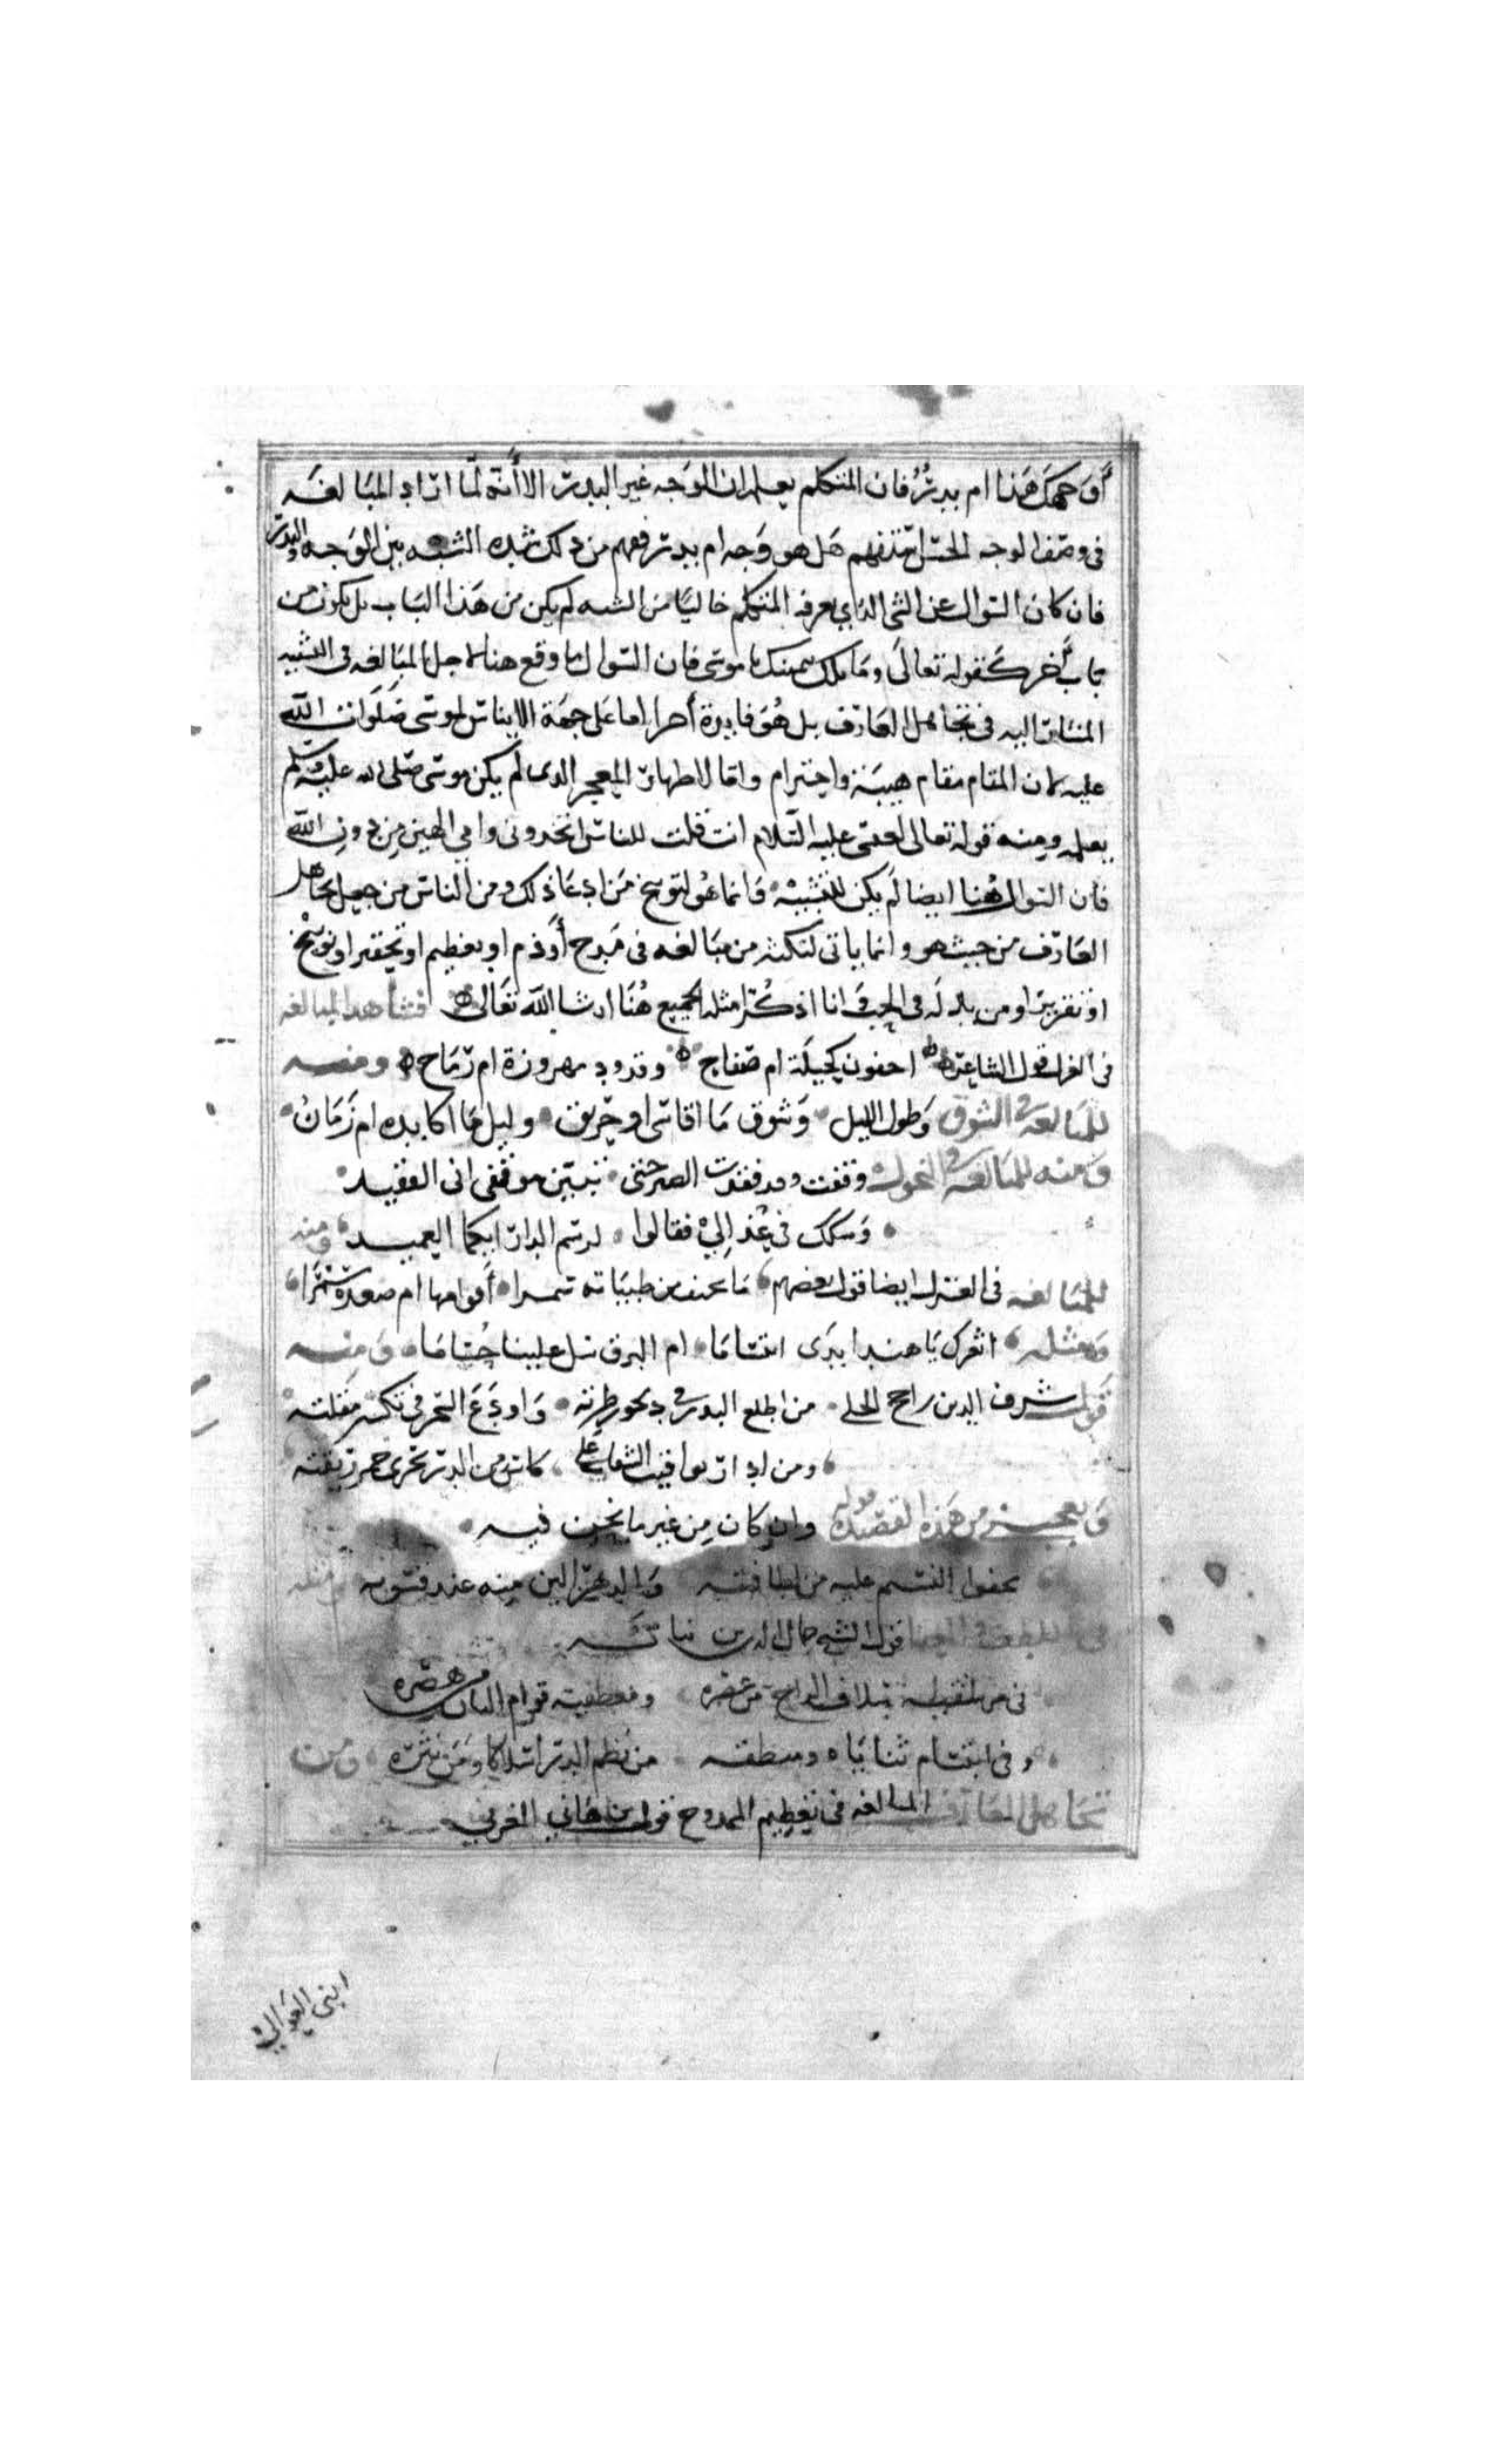 أوجهك هذا ام بدر فان المتكلم يعلم ان الوجه غير البدر الا أنه لما اراد المبالغه
فى وصف الوجه بالحسن استفهم هل هو وجه ام بدر ففهم من ذلك شده الشبه بين الوجه والبدر
فان كان السوال عن الشى الذي يعرفه المتكلم خاليا من الشبه لم يكن من هذا الباب بل يكون من
باب أخر كقوله تعالى وما تلك بيمينك يا موسى فان السوال ما وقع هنا لاجل المبالغه فى التشبيه
المشار اليه فى تجاهل العارف بل هو فايدة أخرا اما على جهة الايناس لموسى صلوات الله
عليه لان المقام مقام هيبة واحترام واما لاظهار المعجز الذى لم يكن موسى صلى الله عليه وسلم
يعلمه ومنه قوله تعالى لعيسى عليه السلام انت قلت للناس اتخذونى وامي الهين من دون الله
فان السوال هنا ايضا لم يكن للتشبيه وانما هو لتوبيخ من ادعا ذلك ومن الناس من جعل تجاهل
العارف من حيث هو وانما ياتى لنكته من مبالغه فى مدح أو ذم او تعظيم او تحقير او توبيخ
او تقرير او من يدله فى الحب وانا اذكر امثله الجميع هنا ان شا الله تعالى فشاهد المبالغه
فى الغزل قول الشاعر اجفون كحيلة ام صفاح وقدود مهروزة ام رماح ومنه
للمبالغه فى الشوق وطول الليل وشوق ما اقاسى او حريق وليل ما اكابده ام زمان
ومنه للمبالغه فى النحول وقفت وقد فقدت الصبر حتى تبين موقفى انى الفقيد
وشكك فى عذالي فقالوا لرسم الدار ايكما العميد ومنه
للمبالغه فى الغزل ايضا قول بعضهم ام صعدة سمرا
ومثله اثغرك يا هند ابدى ابتساما ام البرق سل علينا حساما ومنه
قول شرف الدين راجح الحلى من اطلع البدر فى ديجور طرته واودع السحر فى تكسير مقلته
ومن ادار يواقيت الشفاه على كاس من الدر تجرى خمر ريقته
ويعجبنى من هذه القصيده قوله وان كان من غير ما نحن فيه
يجفوا النسيم عليه من لطافته منه عند قسوته ومنه
قول الشيخ جمال الدين نباته
فى مرشفيه سلاف الراح من عصره ومعطفيه قوام البان من هصره
وفى ابتسام ثناياه ومنطقه من نظم الدر اسلاكا ومن نثره ومن
تجاهل العارف المبالغه فى تعظيم الممدوح قول بن هاني المغربي
ابنى العوالي